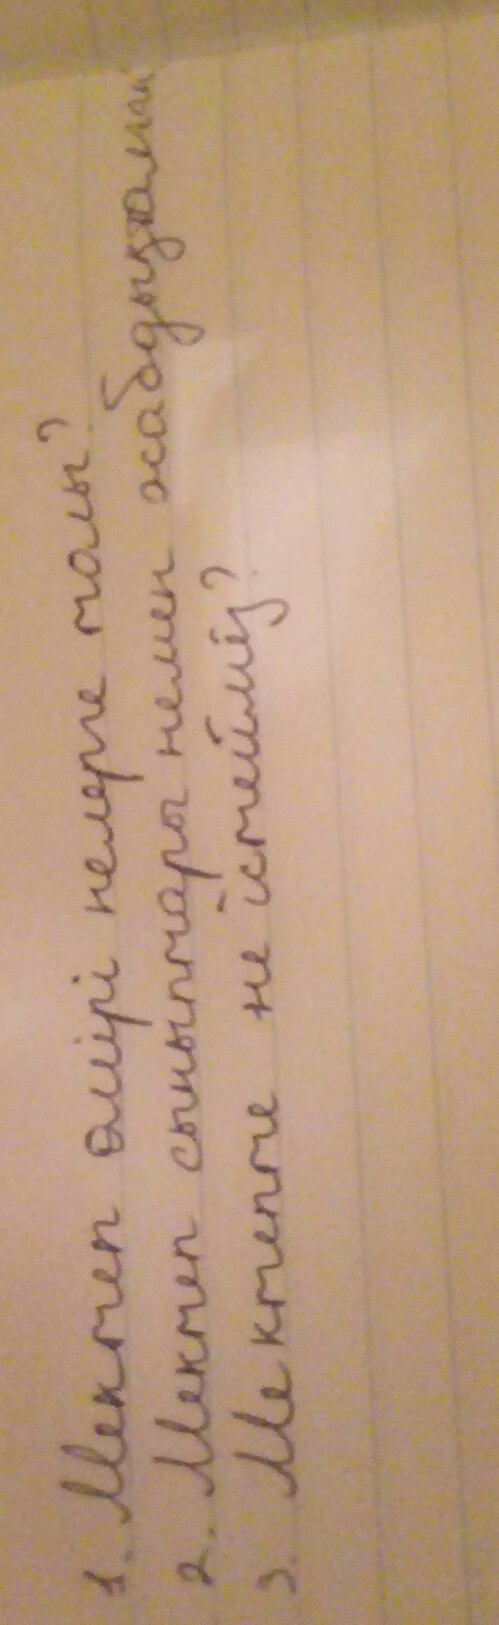 1. Мектеп өмірі нелерге толы?
2. Мектеп сыныптары немен жабдықталған
3. Мектепте не істейміз?